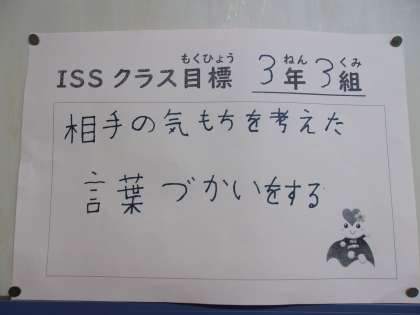 もくひょう ねん くみ
ISS クラス目標 3年3組
相手の気もちを考えた
言葉づかいをする